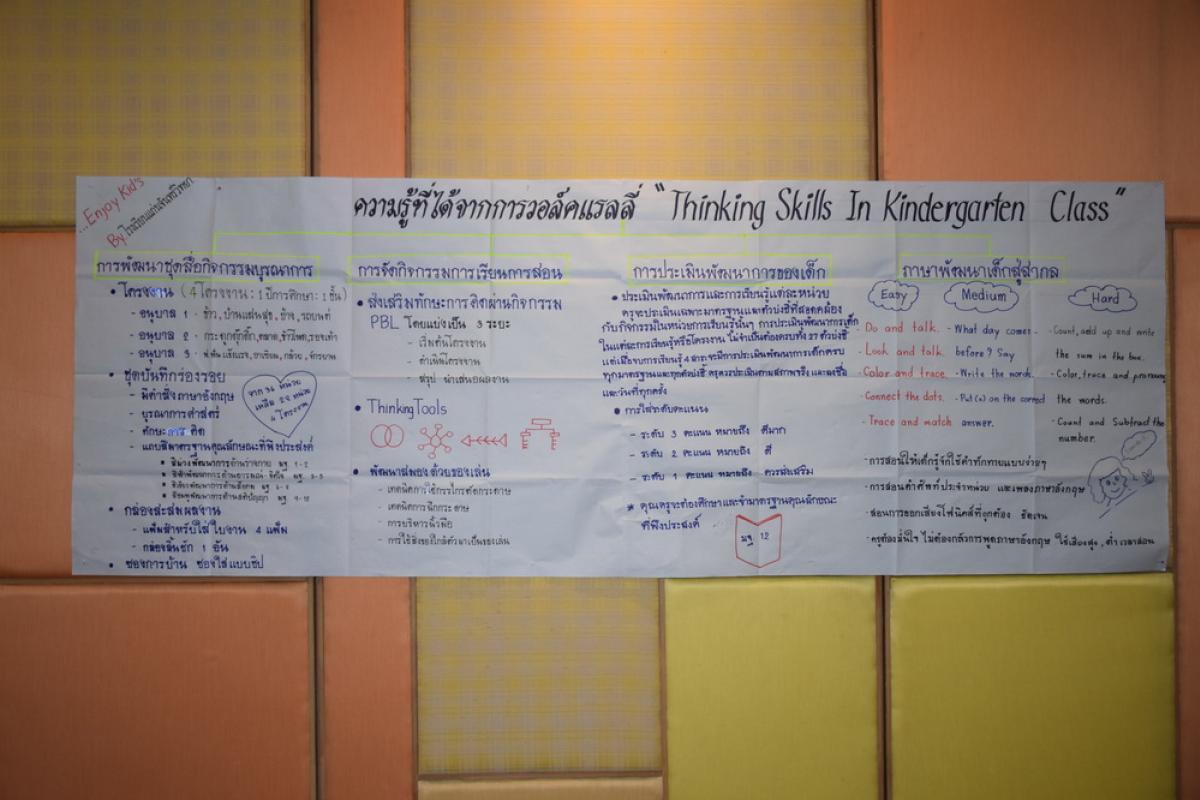 ...Enjoy Kid's
By โรงเรียนแก่นจันทร์วิทยา
ความรู้ที่ได้จากการวอล์คแรลลี่ "Thinking Skills In Kindergarten Class"
การพัฒนาชุดสื่อกิจกรรมบูรณาการ
• โครงงาน (4 โครงงาน : 1 ปีการศึกษา : 1 ชั้น)
- อนุบาล 1 - ข้าว, บ้านแสนสุข, ช้าง, รถยนต์
- อนุบาล 2 - กระดุกดุ๊กดิ๊ก, ตลาด, ข้าวโพด, รองเท้า
- อนุบาล 3 - แข็งแรง, อาเซียน, กล้วย, จักรยาน
• ชุดบันทึกร่องรอย
- มีคำสั่งภาษาอังกฤษ
- บูรณาการศาสตร์
- ทักษะการคิด
- แถบสีมาตรฐานคุณลักษณะที่พึงประสงค์
จาก 36 หน่วย
เหลือ 24 หน่วย
4 โครงงาน
• กล่องสะสมผลงาน
- แฟ้มสำหรับใส่ใบงาน 4 แฟ้ม
- กล่องลิ้นชัก 1 อัน
• ซองการบ้าน ซองใส่แบบซิป
การจัดกิจกรรมการเรียนการสอน
• ส่งเสริมทักษะการคิดผ่านกิจกรรม
PBL โดยแบ่งเป็น 3 ระยะ
- เริ่มต้นโครงงาน
- ดำเนินโครงงาน
- สรุป นำเสนอผลงาน
• Thinking Tools
• พัฒนาสมองด้วยของเล่น
- เทคนิคการใช้กรรไกรตัดกระดาษ
- เทคนิคการฉีกกระดาษ
- การบริหารนิ้วมือ
- การใช้สิ่งของใกล้ตัวมาเป็นของเล่น
การประเมินพัฒนาการของเด็ก
• ประเมินพัฒนาการและการเรียนรู้แต่ละหน่วย
ครูจะประเมินเฉพาะมาตรฐานและตัวบ่งชี้ที่สอดคล้อง
กับกิจกรรมในหน่วยการเรียนรู้นั้นๆ การประเมินพัฒนาการเด็ก
ในแต่ละการเรียนรู้หรือโครงงาน ไม่จำเป็นต้องครบทั้ง 27 ตัวบ่งชี้
แต่เมื่อจบการเรียนรู้ 4 สาระจะมีการประเมินพัฒนาการเด็กครบ
ทุกมาตรฐานและทุกตัวบ่งชี้ ครูควรประเมินตามสภาพจริง และลงชื่อ
และวันที่ทุกครั้ง
• การใส่ระดับคะแนน
- ระดับ 3 คะแนน หมายถึง ดีมาก
- ระดับ 2 คะแนน หมายถึง ดี
- ระดับ 1 คะแนน หมายถึง ควรส่งเสริม
* คุณครูจะต้องศึกษาและจำมาตรฐานคุณลักษณะ
ที่พึงประสงค์
มฐ 12
ภาษาพัฒนาเด็กสู่สากล
Easy
- Do and talk.
- Look and talk.
- Color and trace.
- Connect the dots.
- Trace and match
Medium
- What day comes
before? Say
- Write the words.
- Put (x) on the correct
answer.
Hard
- Count, add up and write
the sum in the box.
- Color, trace and pronoun
the words.
- Count and Subtract the
number.
- การสอนให้เด็กรู้จักใช้คำทักทายแบบง่ายๆ
- การสอนคำศัพท์ประจำหน่วย และเพลงภาษาอังกฤษ
- สอนการออกเสียงโฟนิคส์ที่ถูกต้อง ชัดเจน
- ครูต้องมั่นใจ ไม่ต้องกลัวการพูดภาษาอังกฤษ ใช้เสียงสูง, ต่ำ เวลาสอน